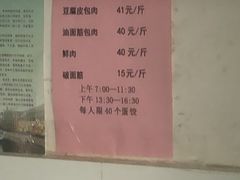 豆腐皮包肉 41元/斤
油面筋包肉 40元/斤
鲜肉 40元/斤
破面筋 15元/斤
上午7:00—11:30
下午13:30—16:30
每人限40个蛋饺